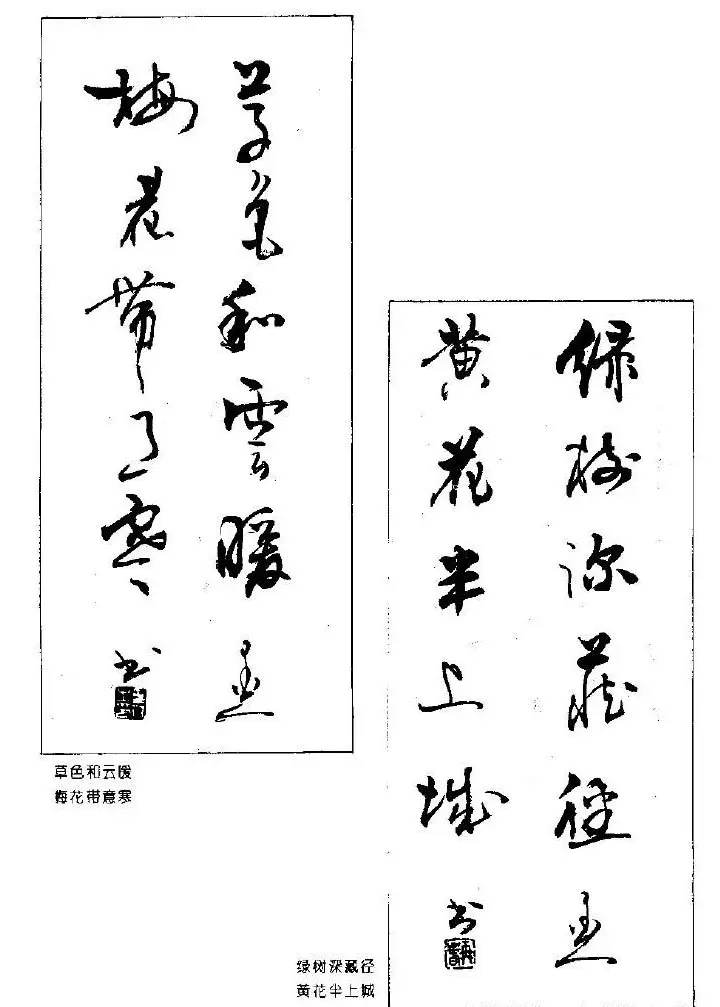 草色和雲暖
梅花帶意寒
书
草色和云暖
梅花带意寒
绿树深藏径
黄花半上城
书
绿树深藏径
黄花半上城